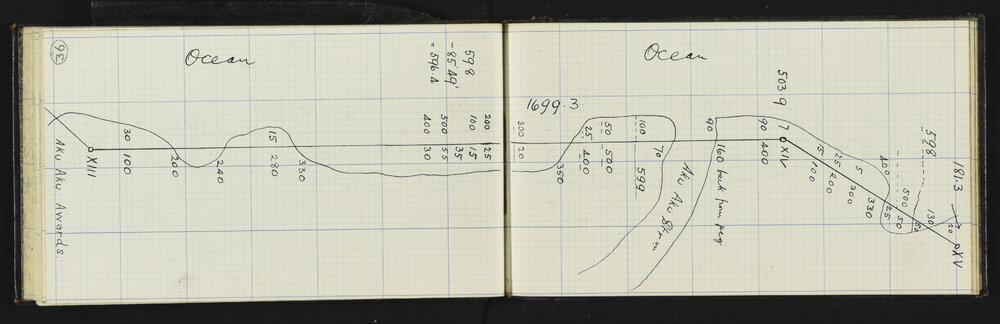 36
Ocean
598
- 85° 49'
= 596.4
200 25
100 15
35
500 55
400 30
30
100
210
240
15
280
330
XIII
Aku Aku Awards.
Ocean
1699.3
300 20
350
25 400
50 500
100 599
70
Aku Aku
90
160 back from peg
503.9
90 400
7
XIV
15 100
25 200
5 300
330
400
25
500 50
598
130
20
181.3
XV